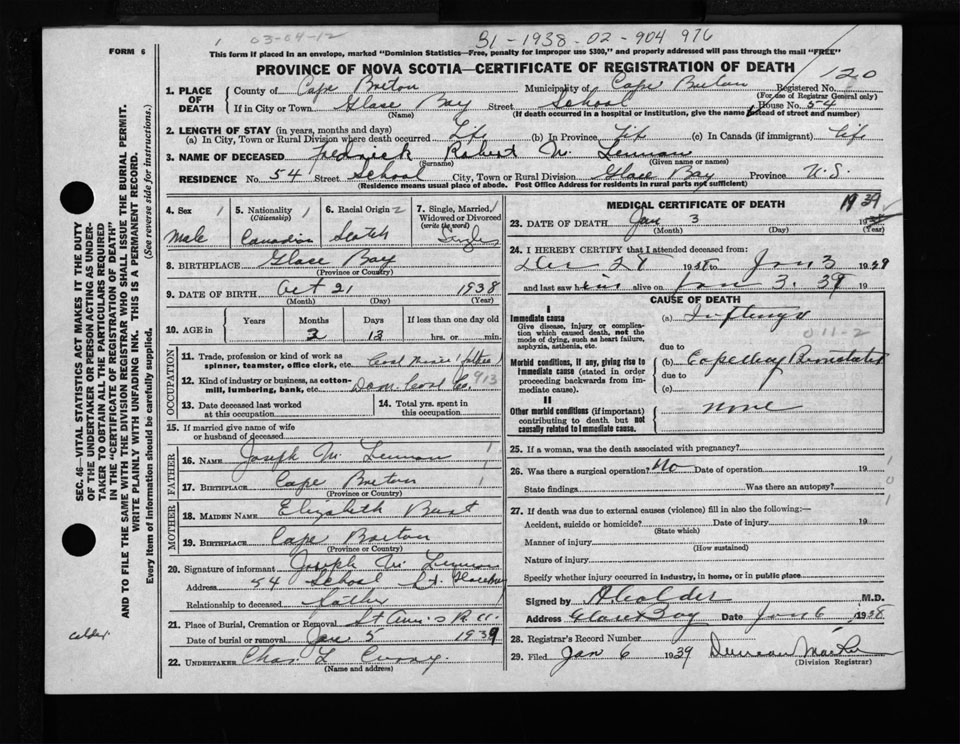 1 03-04-12
31-1938-02-904 976
FORM 6
This form if placed in an envelope, marked "Dominion Statistics—Free, penalty for improper use $300," and properly addressed will pass through the mail "FREE"
PROVINCE OF NOVA SCOTIA—CERTIFICATE OF REGISTRATION OF DEATH
120
1. PLACE OF DEATH County of Cape Breton Municipality of Cape Breton Registered No.
(For use of Registrar General only)
If in City or Town Glace Bay Street School House No. 54
(Name) (If death occurred in a hospital or institution, give the name instead of street and number)
2. LENGTH OF STAY (in years, months and days)
(a) In City, Town or Rural Division where death occurred Life (b) In Province Life (c) In Canada (if immigrant) Life
3. NAME OF DECEASED Fredrick Robert Mc Lennan
(Surname) (Given name or names)
RESIDENCE No. 54 Street School City, Town or Rural Division Glace Bay Province N.S.
(Residence means usual place of abode. Post Office Address for residents in rural parts not sufficient)
4. Sex 1 Male
5. Nationality 1 (Citizenship) Canadian
6. Racial Origin 2 Scotch
7. Single, Married, Widowed or Divorced (write the word) 1 Single
8. BIRTHPLACE Glace Bay
(Province or Country)
9. DATE OF BIRTH Oct 21 1938
(Month) (Day) (Year)
10. AGE in Years Months Days If less than one day old
2 13 hrs. or min.
OCCUPATION
11. Trade, profession or kind of work as spinner, teamster, office clerk, etc. Coal Miner (father)
12. Kind of industry or business, as cotton-mill, lumbering, bank, etc. Dom. Coal Co. 913
13. Date deceased last worked at this occupation
14. Total yrs. spent in this occupation
15. If married give name of wife or husband of deceased
FATHER
16. NAME Joseph Mc Lennan 1
17. BIRTHPLACE Cape Breton 1
(Province or Country)
MOTHER
18. MAIDEN NAME Elizabeth
19. BIRTHPLACE Cape Breton
(Province or Country)
20. Signature of informant Joseph Mc Lennan
Address 54 School St. Glace Bay
Relationship to deceased Father
21. Place of Burial, Cremation or Removal St Ann's
Date of burial or removal Jan 5 1939
22. UNDERTAKER Chas. L Curry
(Name and address)
MEDICAL CERTIFICATE OF DEATH
23. DATE OF DEATH Jan 3 1939
(Month) (Day) (Year)
24. I HEREBY CERTIFY that I attended deceased from:
Dec 28 1938 to Jan 3 1939
and last saw him alive on Jan 3. 39 19
CAUSE OF DEATH
I
Immediate cause (a)
Give disease, injury or complication which caused death, not the mode of dying, such as heart failure, asphyxia, asthenia, etc.
011-2
due to
Morbid conditions, if any, giving rise to immediate cause (stated in order proceeding backwards from immediate cause). (b) Capillary Bronchitis
due to
(c)
II
Other morbid conditions (if important) contributing to death but not causally related to immediate cause. none
25. If a woman, was the death associated with pregnancy?
26. Was there a surgical operation? No Date of operation 19
State findings Was there an autopsy?
27. If death was due to external causes (violence) fill in also the following:—
Accident, suicide or homicide? Date of injury 19
(State which)
Manner of injury
(How sustained)
Nature of injury
Specify whether injury occurred in industry, in home, or in public place.
Signed by A Calder M.D.
Address Glace Bay Date Jan 6 1938
28. Registrar's Record Number
29. Filed Jan 6 1939 Duncan
(Division Registrar)
SEC. 46—VITAL STATISTICS ACT MAKES IT THE DUTY
OF THE UNDERTAKER OR PERSON ACTING AS UNDER-
TAKER TO OBTAIN ALL THE PARTICULARS REQUIRED
IN THE "CERTIFICATE OF REGISTRATION OF DEATH"
AND TO FILE THE SAME WITH THE DIVISION REGISTRAR WHO SHALL ISSUE THE BURIAL PERMIT.
WRITE PLAINLY WITH UNFADING INK. THIS IS A PERMANENT RECORD.
Every item of information should be carefully supplied. (See reverse side for instructions.)
Calder.